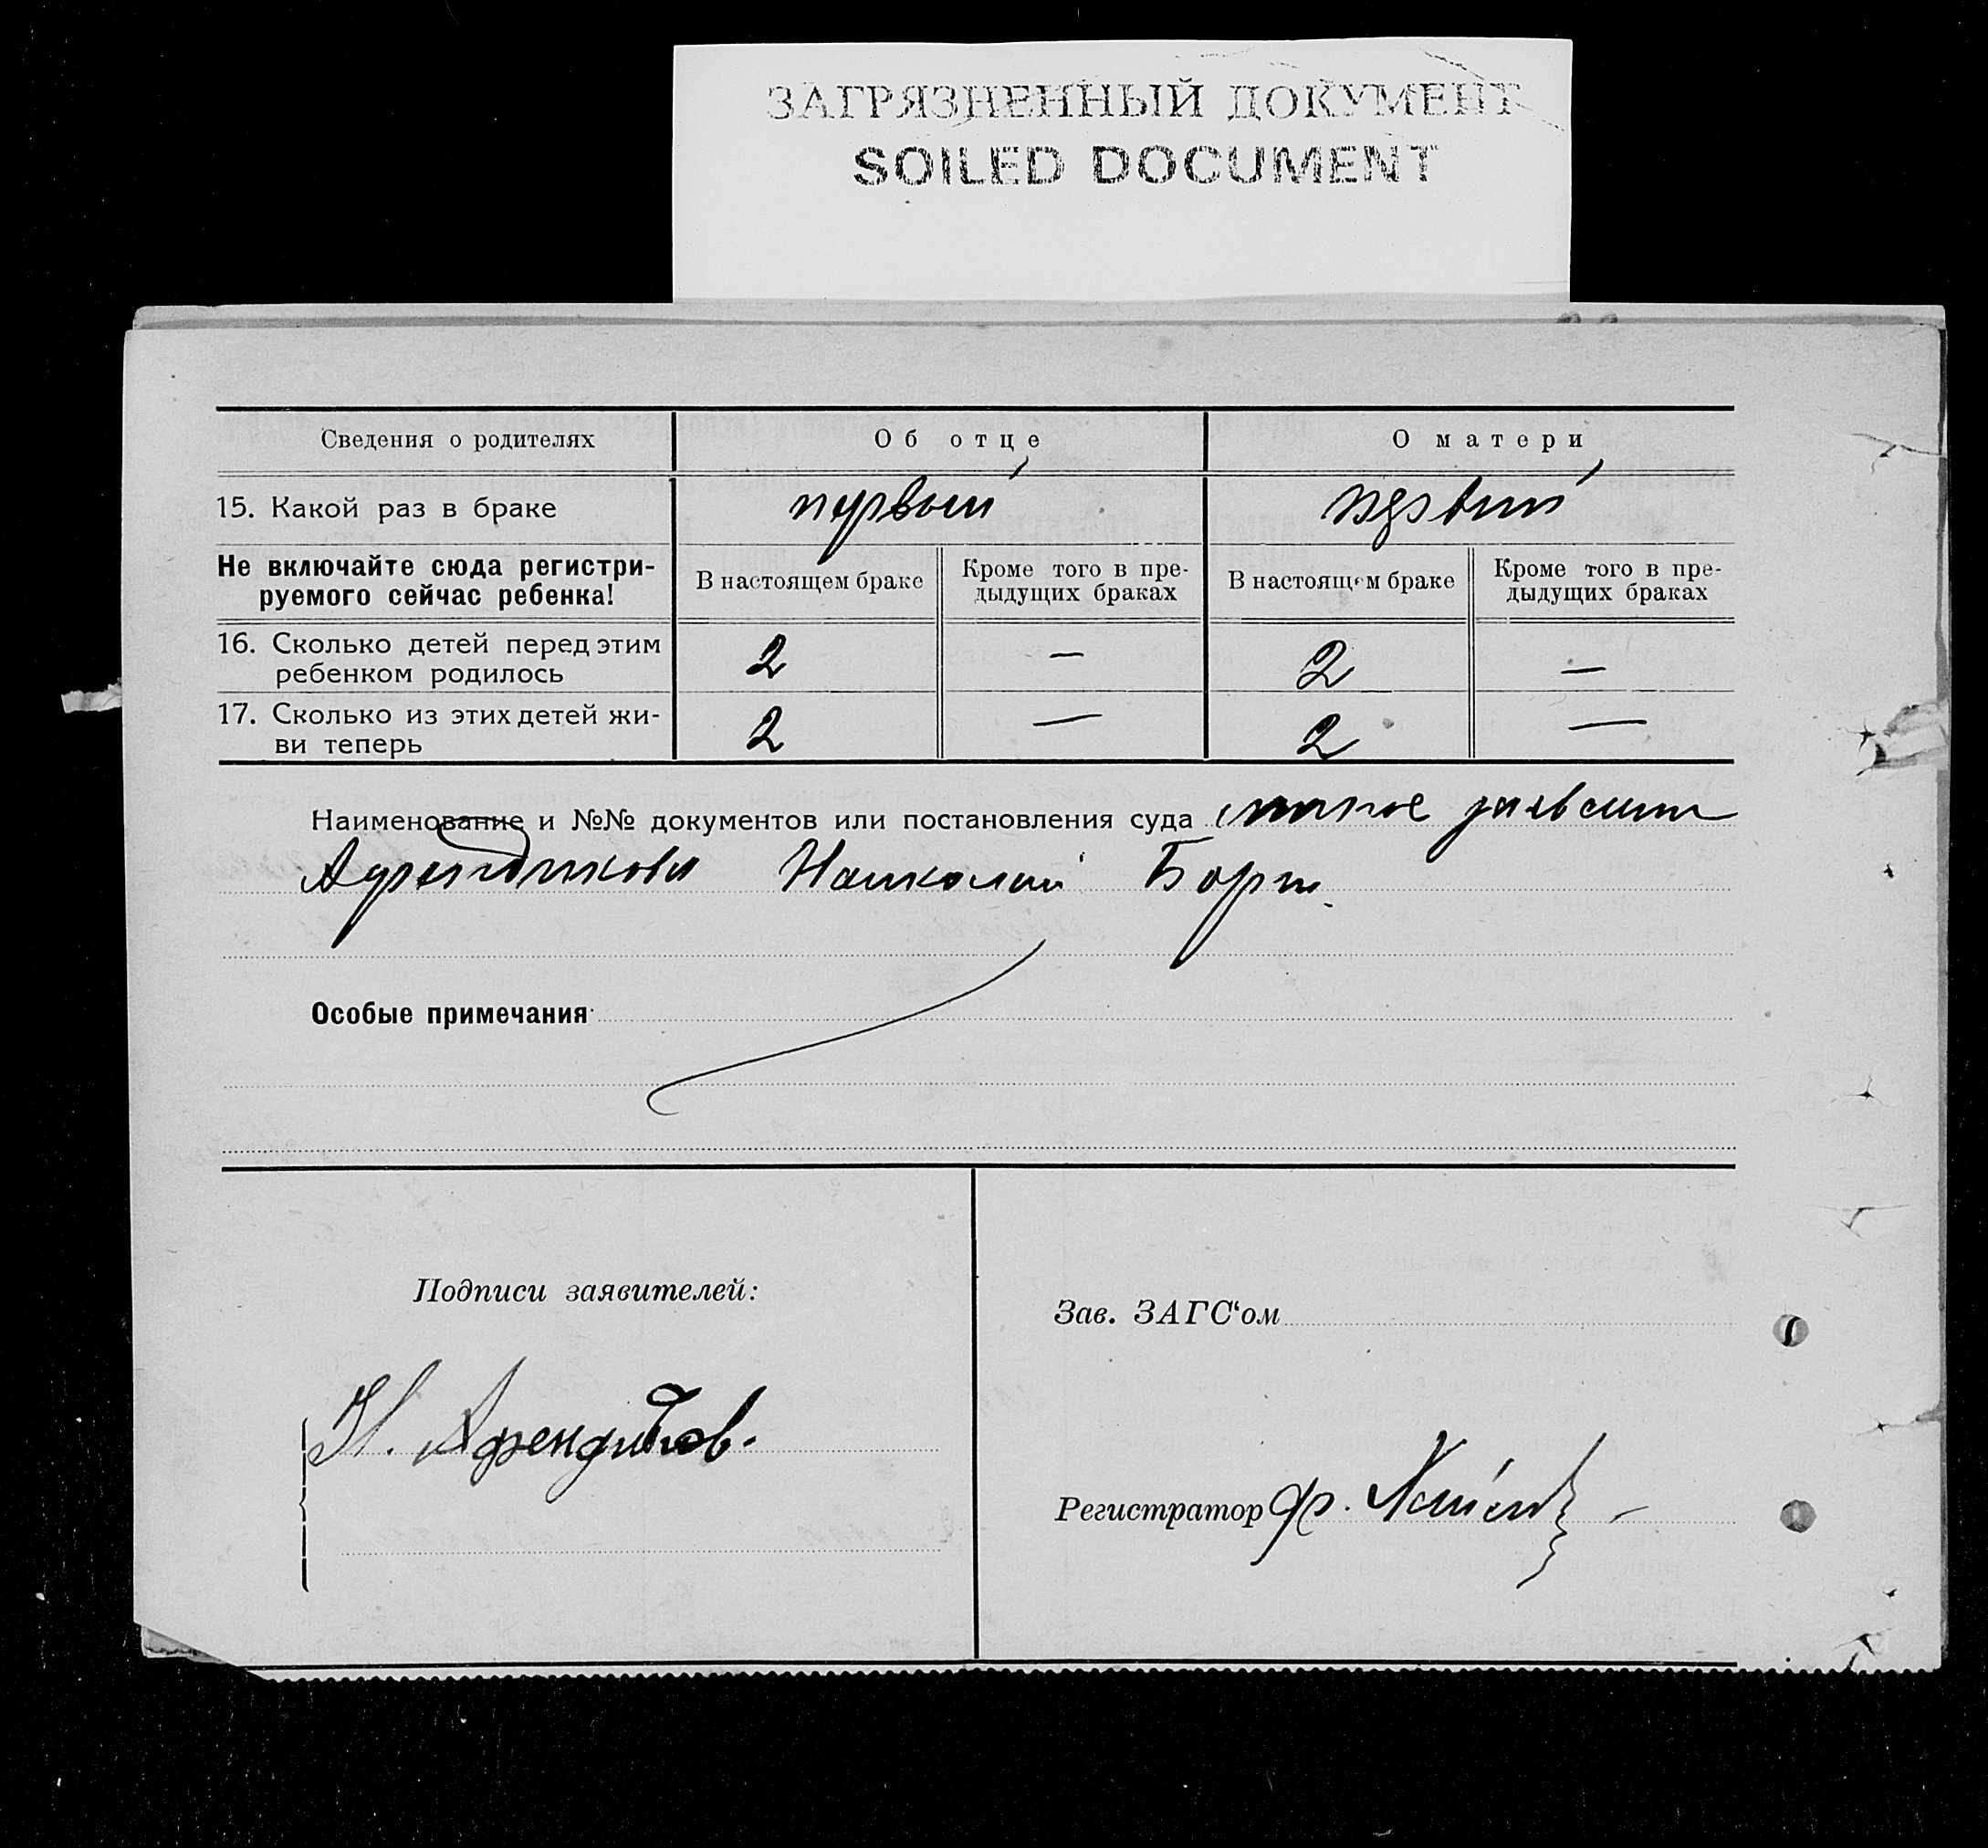 ЗАГРЯЗНЕННЫЙ ДОКУМЕНТ
SOILED DOCUMENT
Сведения о родителях
Об отце
О матери
15. Какой раз в браке
первый
первый
Не включайте сюда регистри-
руемого сейчас ребенка!
В настоящем браке
Кроме того в пре-
дыдущих браках
В настоящем браке
Кроме того в пре-
дыдущих браках
16. Сколько детей перед этим
ребенком родилось
2
—
2
—
17. Сколько из этих детей жи-
ви теперь
2
—
2
—
Наименование и №№ документов или постановления суда личное
Афендикова Борис
Особые примечания
Подписи заявителей:
Н. Афендиков.
Зав. ЗАГС‘ом
Регистратор